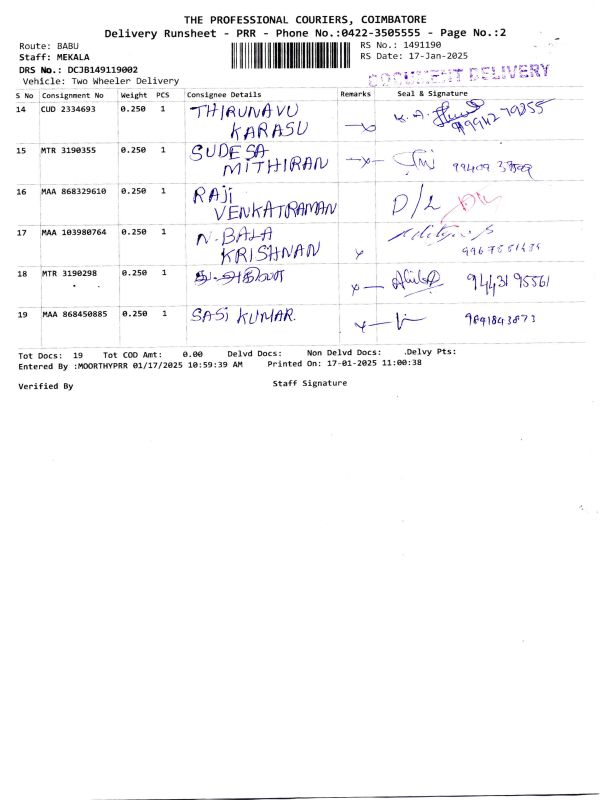 THE PROFESSIONAL COURIERS, COIMBATORE
Delivery Runsheet - PRR - Phone No.:0422-3505555 - Page No.:2
Route: BABU RS No.: 1491190
Staff: MEKALA RS Date: 17-Jan-2025
DRS No.: DCJB149119002
Vehicle: Two Wheeler Delivery DOCUMENT DELIVERY
S No Consignment No Weight PCS Consignee Details Remarks Seal & Signature
14 CUD 2334693 0.250 1 THIRUNAVU
KARASU
15 MTR 3190355 0.250 1 SUDESA
MITHIRAN
16 MAA 868329610 0.250 1 RAJI D/L
VENKATRAMAN
17 MAA 103980764 0.250 1 N. BALA
KRISHNAN
18 MTR 3190298 0.250 1 94431 95561
19 MAA 868450885 0.250 1 SASI KUMAR. 9841843873
Tot Docs: 19 Tot COD Amt: 0.00 Delvd Docs: Non Delvd Docs: .Delvy Pts:
Entered By :MOORTHYPRR 01/17/2025 10:59:39 AM Printed On: 17-01-2025 11:00:38
Verified By Staff Signature